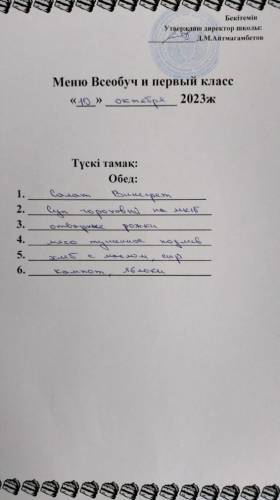 Бекітемін
Утверждаю директор школы:
Д.М.Айтмагамбетов
Меню Всеобуч и первый класс
«10» октября 2023ж
Түскі тамақ:
Обед:
1. Салат Винегрет
2. Суп гороховый на мк/б
3. отварные рожки
4. мясо тушенное подлив
5. хлеб с маслом, сыр
6. компот, яблоки